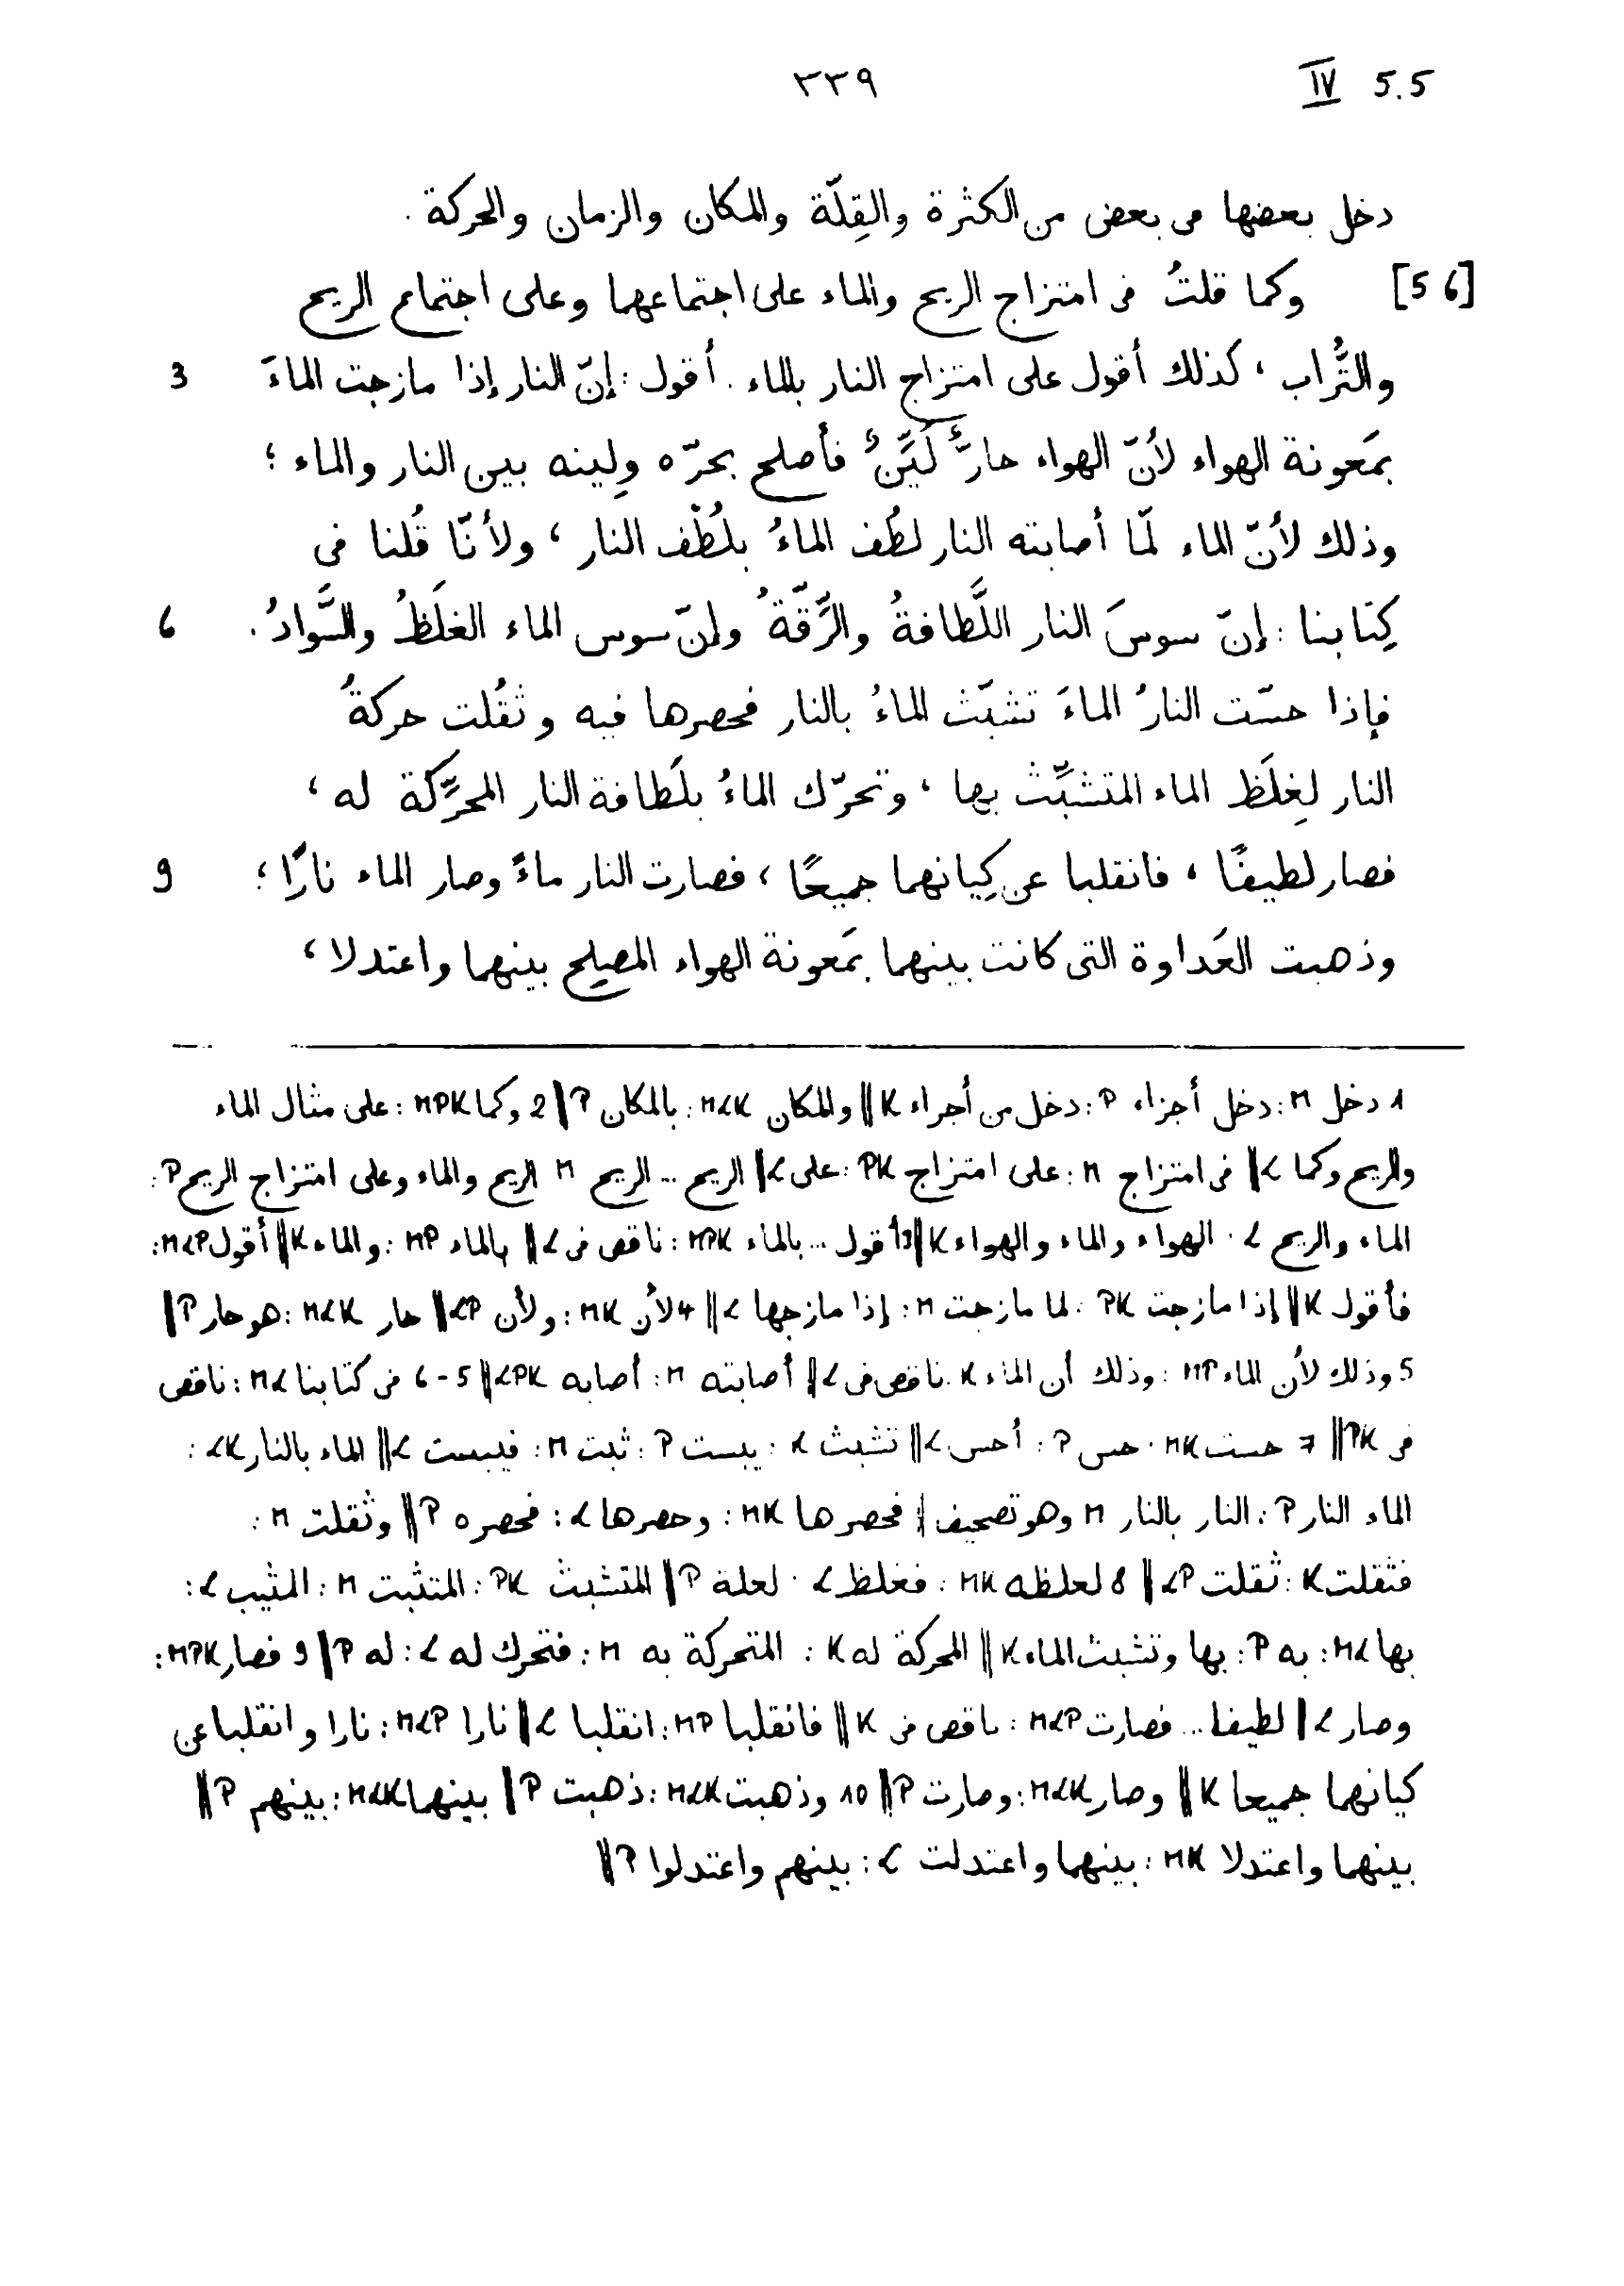 IV 5.5 ٣٣٩
دخل بعضها في بعض من الكثرة والقِلّة والمكان والزمان والحركة .
[56] وكما قلتُ في امتزاج الريح والماء على اجتماعهما وعلى اجتماع الريح
والتُّراب ، كذلك أقول على امتزاج النار بالماء . أقول : إنّ النار إذا مازجت الماءَ 3
بمَعونة الهواء لأنّ الهواء حارٌّ لَيِّنٌ فأصلح بحرّه ولِينه بين النار والماء ؛
وذلك لأنّ الماء لمّا أصابته النار لطُف الماءُ بلُطْف النار ، ولأنّا قُلنا في
كِتابنا : إنّ سوسَ النار اللَّطافةُ والرِّقّةُ وإنّ سوس الماء الغلَظُ والسَّوادُ . 6
فإذا حسّت النارُ الماءَ تشبّث الماءُ بالنار فحصرها فيه وثقُلت حركةُ
النار لغِلَظ الماء المتشبِّث بها ، وتحرّك الماءُ بلَطافة النار المحرِّكة له ،
فصار لطيفًا ، فانقلبا عن كِيانهما جميعًا ، فصارت النار ماءً وصار الماء نارًا ؛ 9
وذهبت العَداوة التي كانت بينهما بمَعونة الهواء المصلِح بينهما واعتدلا ،
1 دخل M : دخل أجزاء P : دخل من أجزاء K || والمكان MLK : بالمكان P || 2 وكما MPK : على مثال الماء
والريح وكما L || في امتزاج M : على امتزاج PK : على L || الريح ... الريح M الريح والماء وعلى امتزاج الريح P :
الماء والريح L : الهواء والماء والهواء K || 3 أقول ... بالماء MPK : ناقص في L || بالماء MP : والماء K || أقول MLP :
فأقول K || إذا مازجت PK : لما مازجت M : إذا مازجها L || 4 لأن MK : ولأن LP || حار MLK : هو حار P ||
5 وذلك لأن الماء MP : وذلك أن الماء K : ناقص في L || أصابته M : أصابه LPK || 5-6 في كتابنا ML : ناقص
في PK || 7 حست MK : حس P : أحس L || تشبث K : يبست P : ثبت M : فيبست L || الماء بالنار LK :
الماء النار P : النار بالنار M وهو تصحيف || فحصرها MK : وحصرها L : فحصره P || وثقلت M :
فثقلت K : ثقلت LP || 8 لغلظه MK : فغلظ L : لعلة P || المتشبث PK : المتثبت M : المثيب L :
بها ML : به P : بها وتشبث الماء K || المحركة له K : المتحركة به M : فتحرك له L : له P || 9 فصار MPK :
وصار L || لطيفا ... فصارت MLP : ناقص في K || فانقلبا MP : انقلبا L || نارا MLP : نارا وانقلبا عن
كيانهما جميعا K || وصار MLK : وصارت P || 10 وذهبت MLK : ذهبت P || بينهما MLK : بينهم P ||
بينهما واعتدلا MK : بينهما واعتدلت L : بينهم واعتدلوا P ||